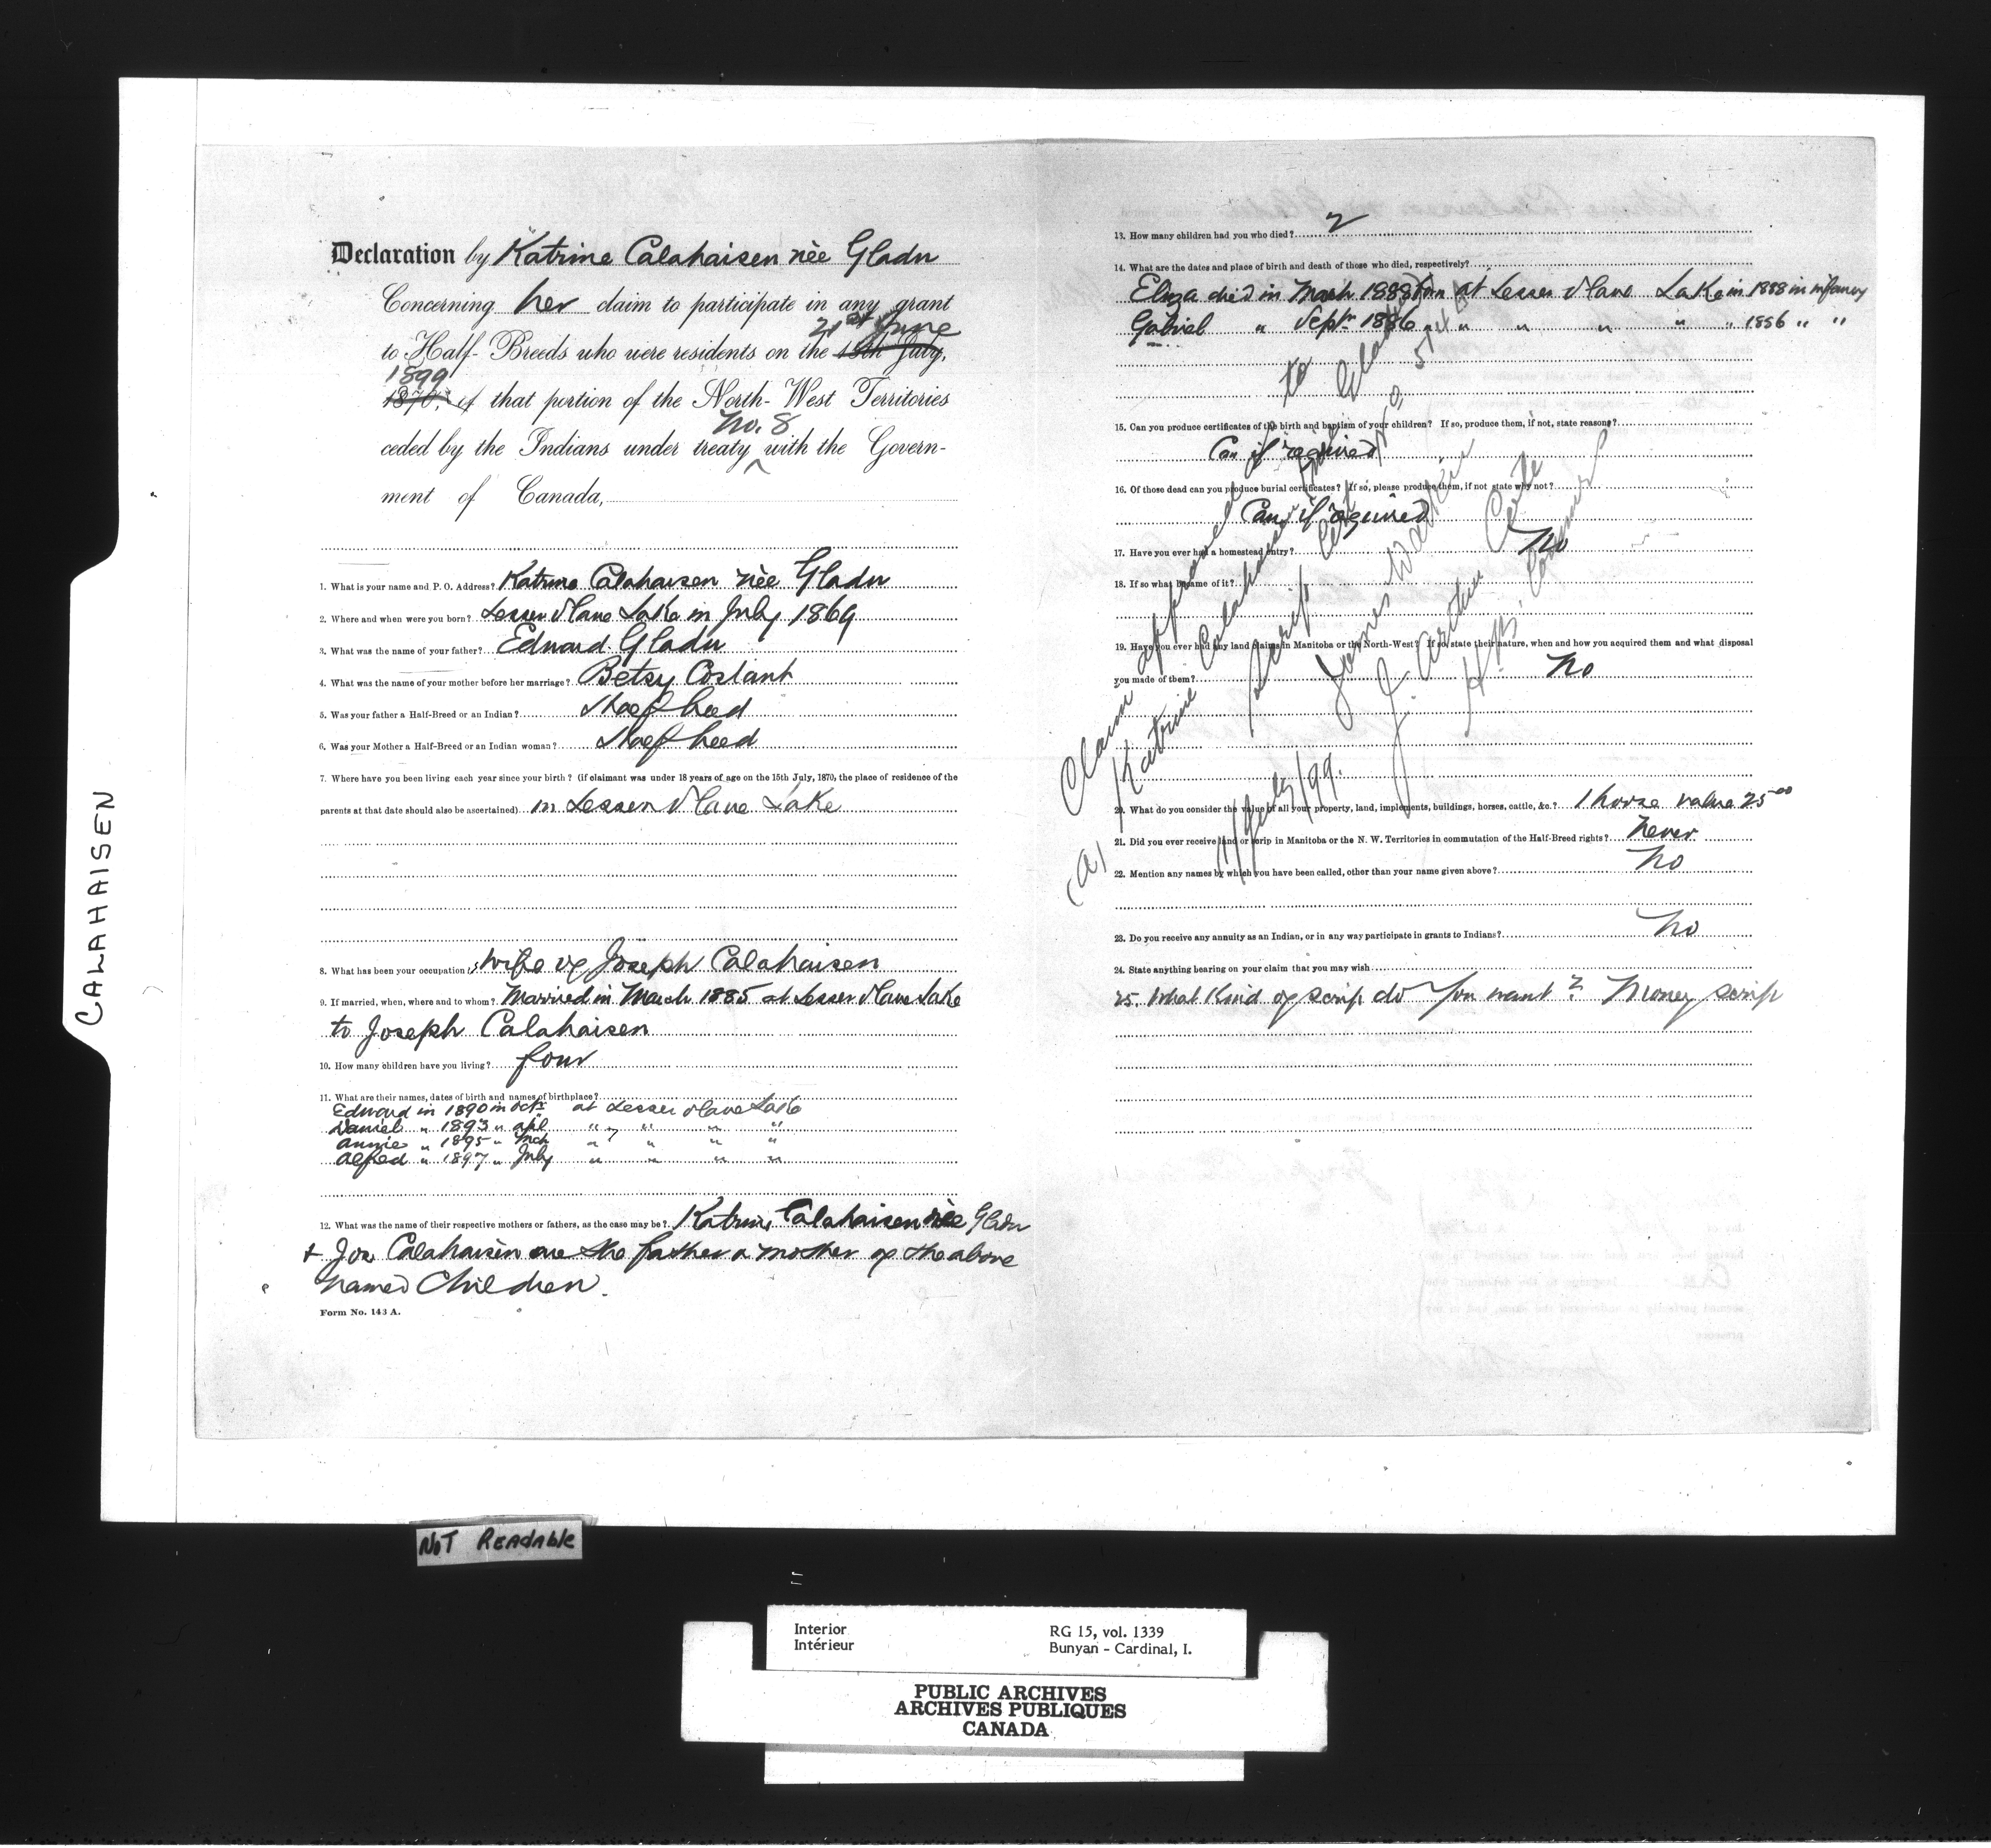 CALAHAISEN
Declaration by Katrine Calahaisen nèe Gladu
Concerning her claim to participate in any grant
21st June
to Half-Breeds who were residents on the 15th July,
1899
1870, of that portion of the North-West Territories
No. 8
ceded by the Indians under treaty ^ with the Govern-
ment of Canada,
1. What is your name and P. O. Address? Katrine Calahaisen nèe Gladu
2. Where and when were you born? Lesser Slave Lake in July 1869
3. What was the name of your father? Edward Gladu
4. What was the name of your mother before her marriage? Betsy
5. Was your father a Half-Breed or an Indian?
6. Was your Mother a Half-Breed or an Indian woman?
7. Where have you been living each year since your birth? (if claimant was under 18 years of age on the 15th July, 1870, the place of residence of the
parents at that date should also be ascertained) in Lesser Slave Lake
8. What has been your occupation? wife of Joseph Calahaisen
9. If married, when, where and to whom? Married in March 1885 at Lesser Slave Lake
to Joseph Calahaisen
10. How many children have you living? four
11. What are their names, dates of birth and names of birthplace?
Edward in 1890 in Octr at Lesser Slave Lake
Daniel " 1893 " apl " " " "
Annie " 1895 " Mch " " " "
Alfred " 1897 " July " " " "
12. What was the name of their respective mothers or fathers, as the case may be? Katrine Calahaisen nèe Gladu
+ Jos Calahaisen are the father & mother of the above
named Children.
Form No. 143 A.
13. How many children had you who died? 2
14. What are the dates and place of birth and death of those who died, respectively?
Eliza died in March 1888 born at Lesser Slave Lake in 1888 in infancy
Gabriel " Septr 1886 " " " " " " 1886 " "
15. Can you produce certificates of the birth and baptism of your children? If so, produce them, if not, state reasons?
Can if required
16. Of those dead can you produce burial certificates? If so, please produce them, if not state why not?
Can if required
17. Have you ever had a homestead entry? No
18. If so what became of it?
19. Have you ever had any land claims in Manitoba or the North-West? If so, state their nature, when and how you acquired them and what disposal
you made of them? No
20. What do you consider the value of all your property, land, implements, buildings, horses, cattle, &c.? 1 horse value 25 00
21. Did you ever receive land or scrip in Manitoba or the N. W. Territories in commutation of the Half-Breed rights? Never
22. Mention any names by which you have been called, other than your name given above? No
23. Do you receive any annuity as an Indian, or in any way participate in grants to Indians? No
24. State anything bearing on your claim that you may wish
25. What Kind of scrip do you want? Money scrip
Claim approved
(A) Katrine Calahaisen
Scrip Cert
to Gladu
James Walker
J. Arthur Coté
H.B. Commrs
11/July/99.
NOT READABLE
Interior
Intérieur
RG 15, vol. 1339
Bunyan - Cardinal, I.
PUBLIC ARCHIVES
ARCHIVES PUBLIQUES
CANADA